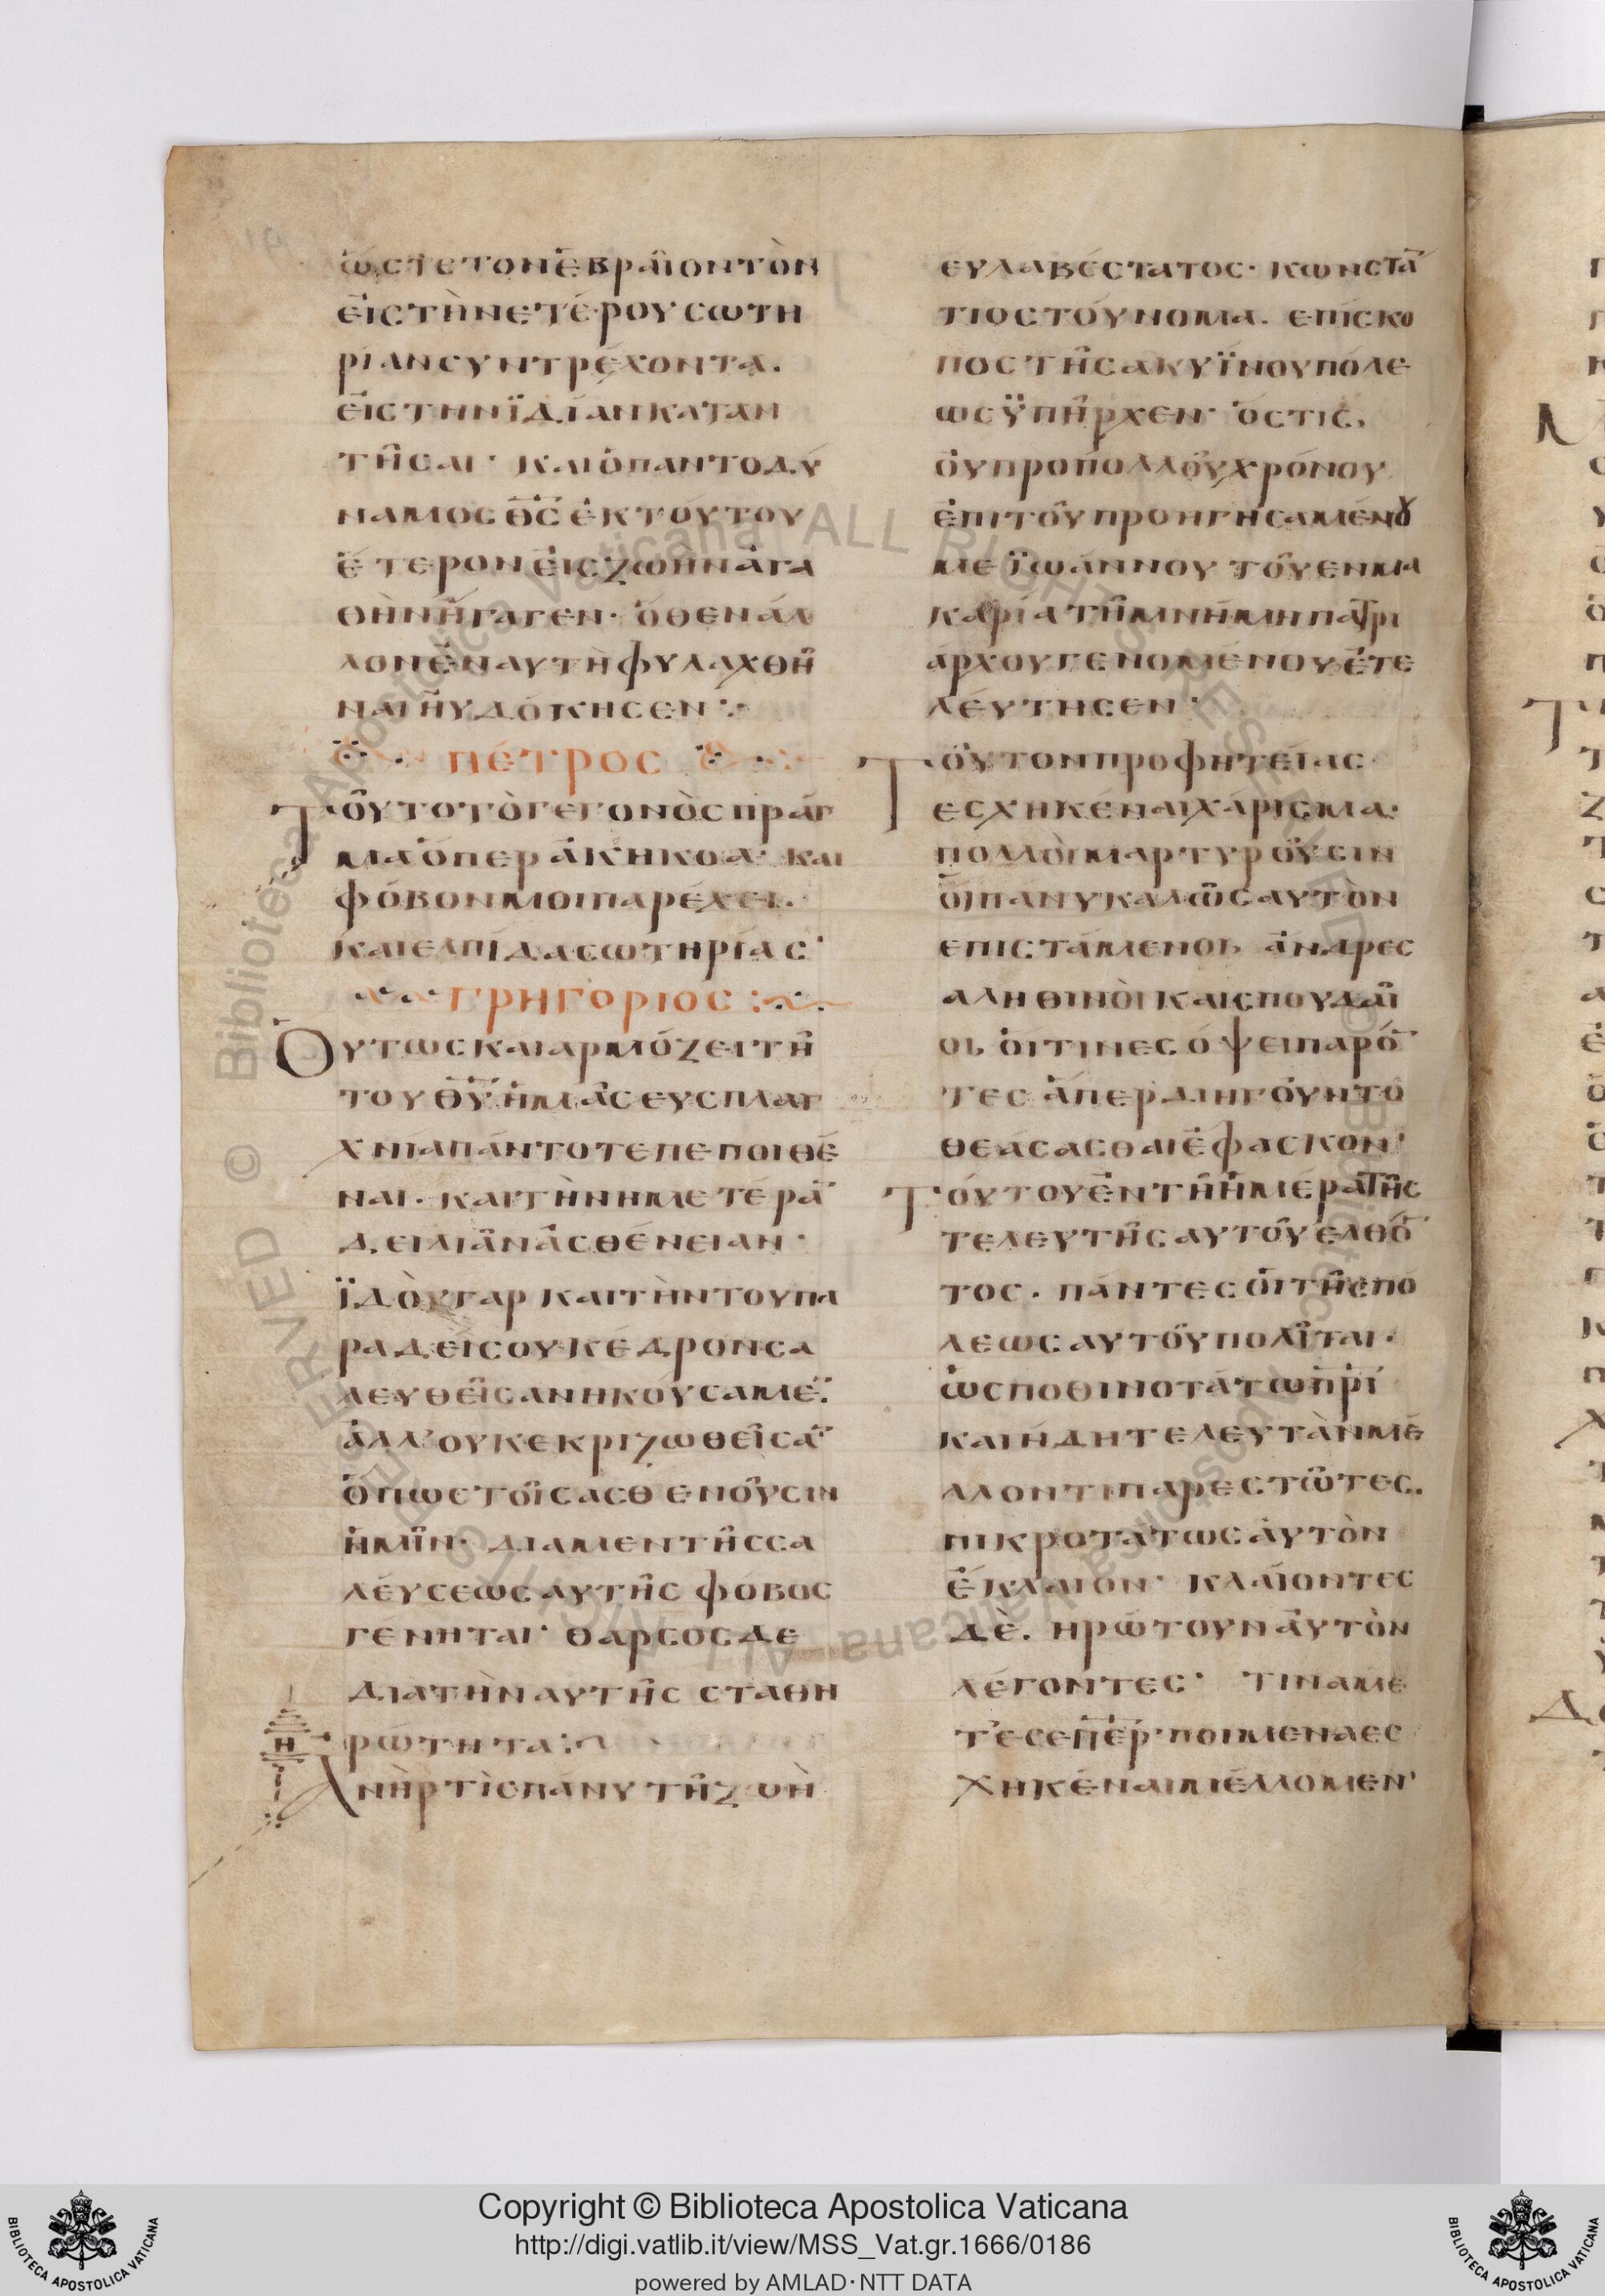 ὥστε τὸν ἑβραῖον τὸν
εἰς τὴν ἑτέρου σωτη
ρίαν συντρέχοντα.
εἰς τὴν ϊδίαν καταν
τῆσαι· καὶ ὁ παντοδύ
ναμος θς ἐκ τούτου
ἕτερον εἰς ζωὴν ἀγα
θὴν ἤγαγεν· ὅθεν ἄλ
λον ἐν αυτῆ φυλαχθῆ
ναι ηὐδόκησεν·
πέτρος
Τοῦτο τὸ γεγονὸς πράγ
μα ὅπερ ἀκήκοα· και
φόβον μοι παρέχει.
και ελπίδα σωτηρίας·
γρηγόριος
Οὕτως και αρμόζει τῆ
του θῦ ἡμᾶς ευσπλαγ
χνία πάντοτε πεποιθέ
ναι. και τὴν ημετέρᾱ
δειλιᾶν ἀσθένειαν·
ϊδοὺ γαρ και τὴν του πα
ραδείσου κέδρον σα
λευθεῖσαν ηκούσαμε̄·
ἀλλ' ουκ εκριζωθεῖσᾱ·
ὅπως τοῖς ασθενοῦσιν
ἡμῖν· δια μεν τῆς σα
λεύσεως αυτῆς φόβος
γένηται· θάρσος δε
δια τὴν αυτῆς σταθη
ρώτητα:
η
Ἀνὴρ τὶς πάνυ τῆ ζωῆ
ευλαβέστατος· κωνστά̄
τιος τούνομα. επίσκο
πος τῆς ακυΐνου πόλε
ως ϋπῆρχεν· ὅστις,
οὐ προ πολλοῦ χρόνου
ἐπι τοῦ προηγησαμένου
με ϊωάννου τοῦ εν μα
καρία τῆ μνήμη πατρι
άρχου γενομένου ἐτε
λεύτησεν·
Τοῦτον προφητείας
εσχηκέναι χάρισμα·
πολλοὶ μαρτυροῦσιν
οἱ πάνυ καλῶς αυτὸν
επιστάμενοι, άνδρες
αληθινοὶ και σπουδαῖ
οι, οἵτινες όψει παρό̄
τες ἅπερ διηγοῦντο
θεάσασθαι έφασκον·
Τούτου ἐν τῆ ἡμέρα τῆς
τελευτῆς αυτοῦ ελθό̄
τος. πάντες οἱ τῆς πό
λεως αυτοῦ πολῖται.
ὡς ποθινοτάτω πρί
και ήδη τελευτᾶν μέ
λλοντι παρεστῶτες.
πικροτάτως αὐτὸν
ἔκλαιον· κλαίοντες
δὲ. ηρώτουν αὐτὸν
λέγοντες· τίνα με
τὲ σε πέρ· ποιμένα εσ
χηκέναι μέλλομεν·
Copyright © Biblioteca Apostolica Vaticana
http://digi.vatlib.it/view/MSS_Vat.gr.1666/0186
powered by AMLAD·NTT DATA